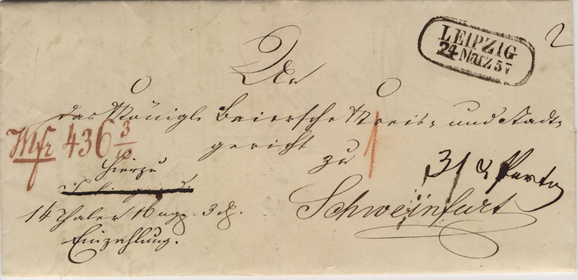 LEIPZIG
24 März 57
2
An
das Königl. Baiersche Kreis- und Stadt-
gericht
zu
Schweinfurt
436 3/10
hierzu
14 Thaler 16 ngr. 3 d.
Einzahlung.